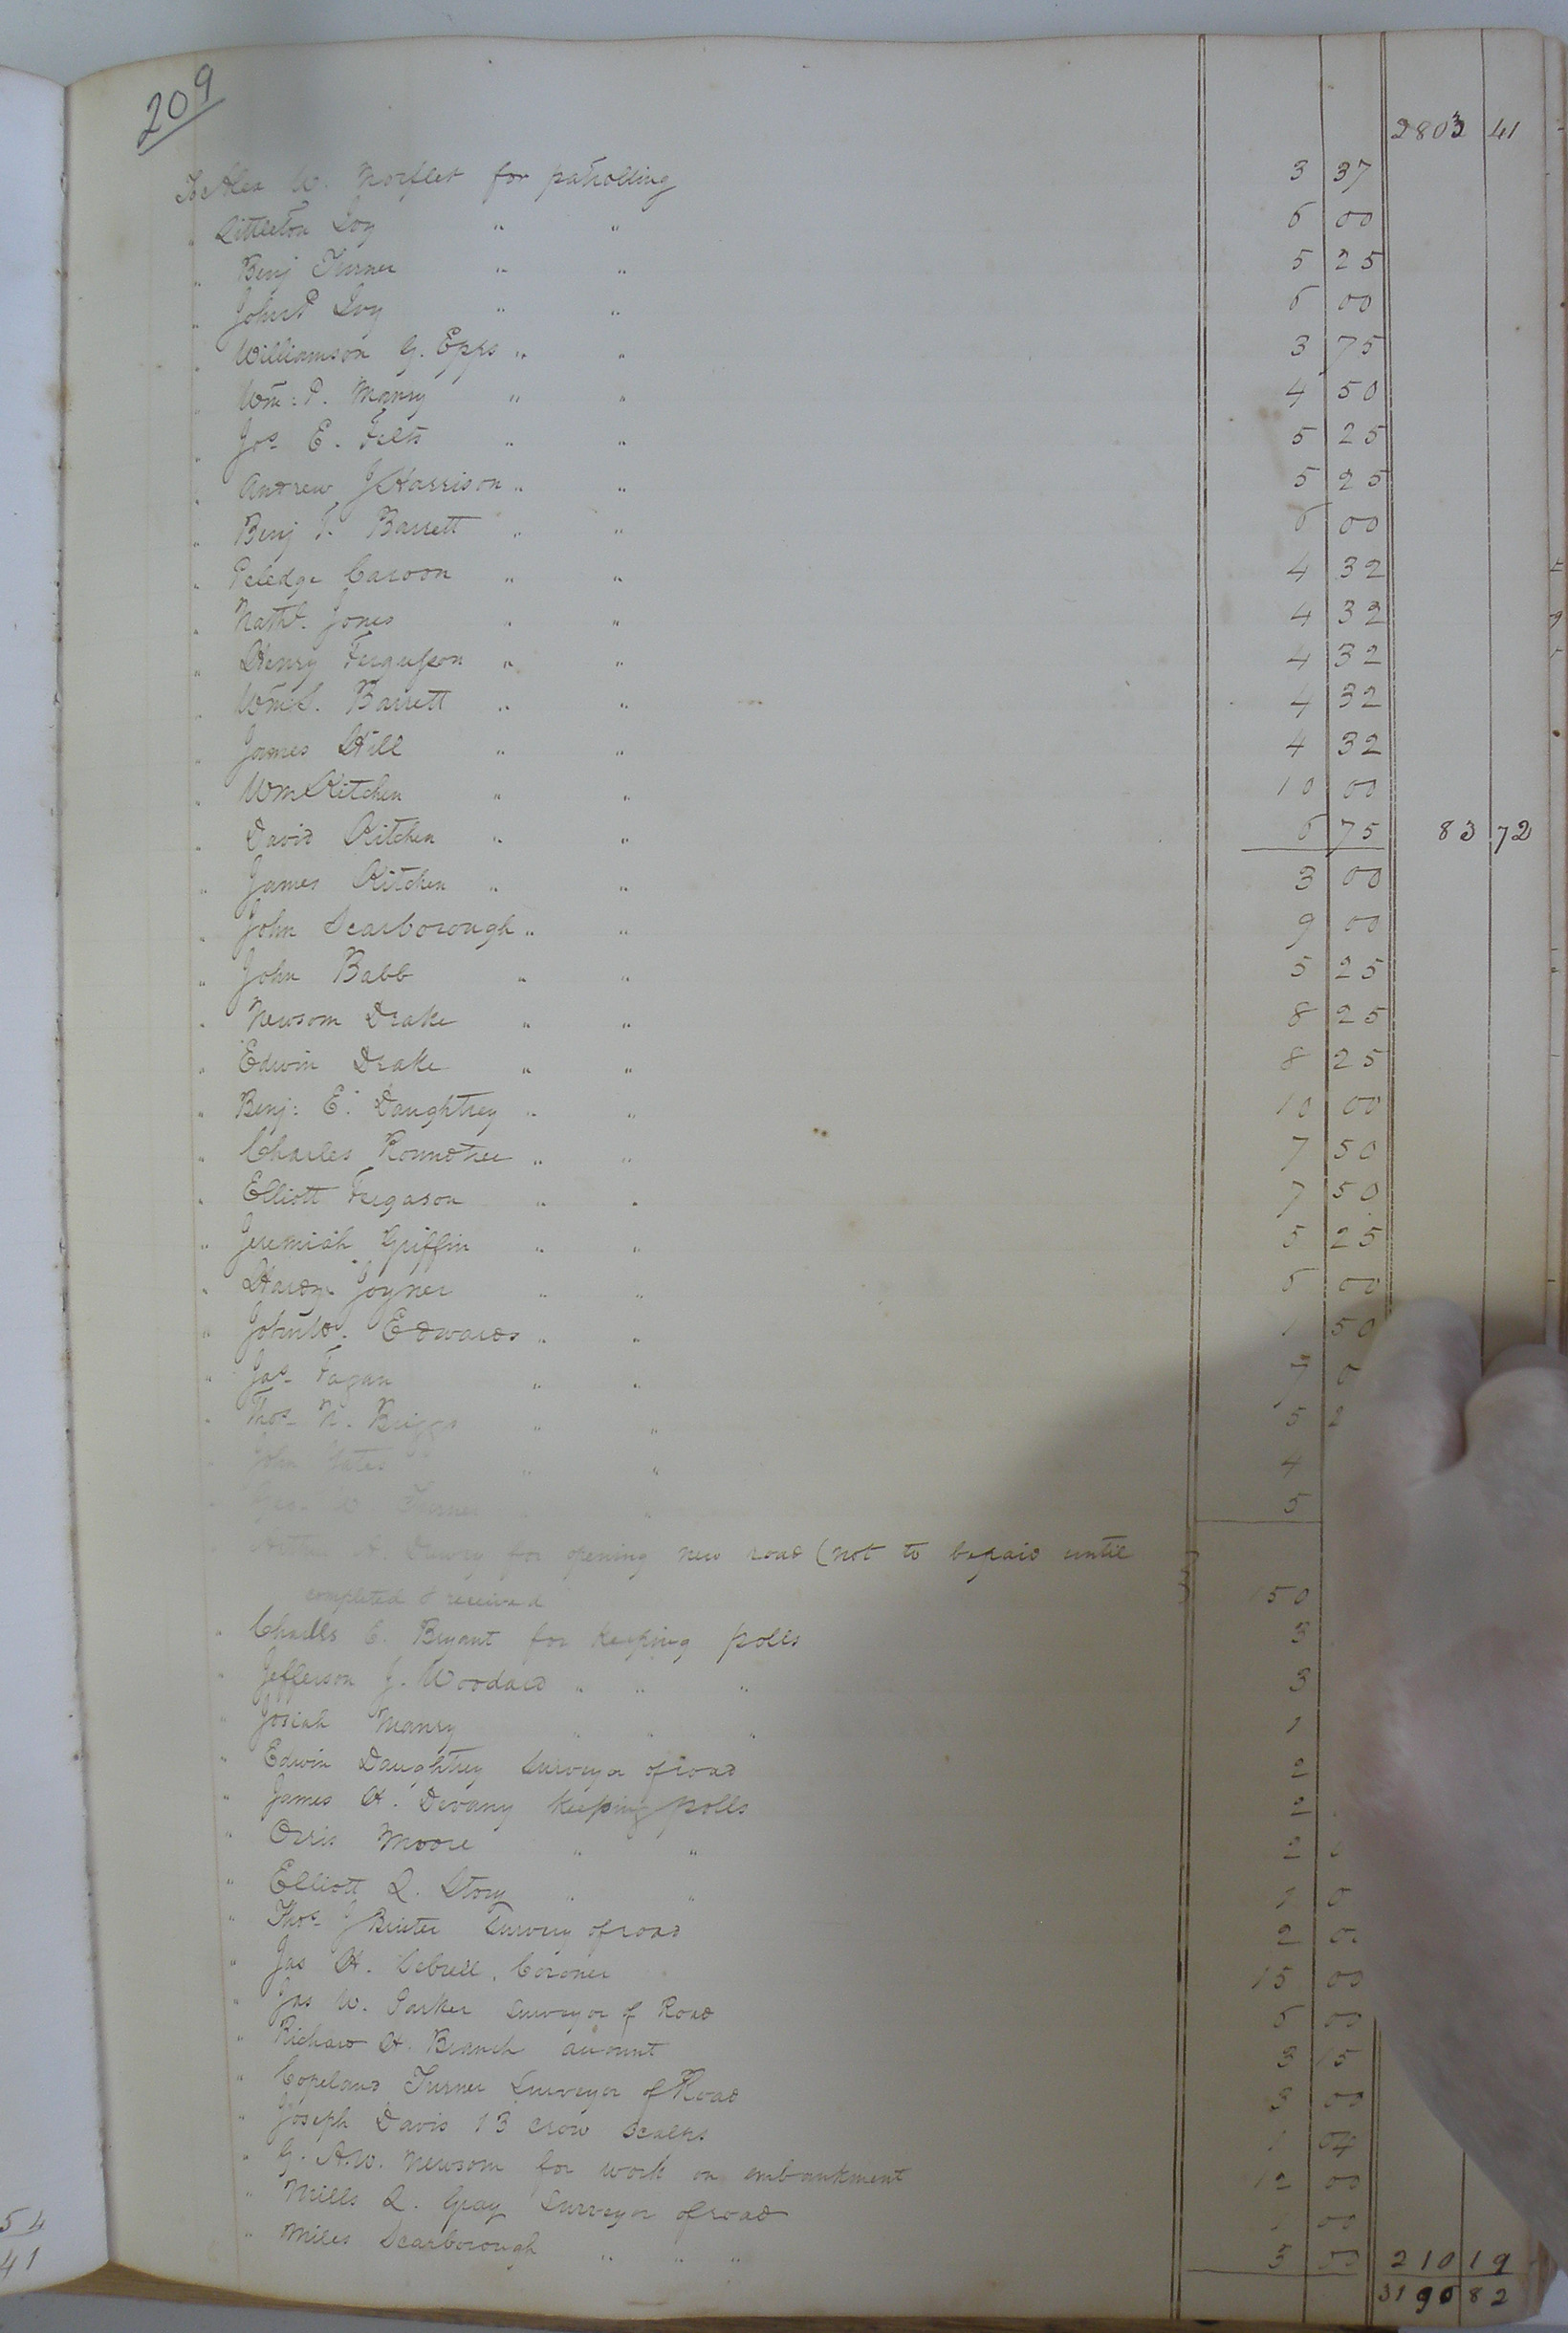 209
2803 41
To Alex W. Norflet for patrolling 3 37
" Littleton Ivy " " 6 00
" Benj Turner " " 5 25
" John P Ivy " " 6 00
" Williamson G. Epps " " 3 75
" Wm: P. Manry " " 4 50
" Jos E. Felts " " 5 25
" Andrew J Harrison " " 5 25
" Benj T. Barrett " " 6 00
" Peledge Carson " " 4 32
" Nathl. Jones " " 4 32
" Henry Fergusson " " 4 32
" Wm S. Barrett " " 4 32
" James Hill " " 4 32
" Wm Kitchen " " 10 00
" David Kitchen " " 6 75 83 72
" James Kitchen " " 3 00
" John Scarborough " " 9 00
" John Babb " " 5 25
" Newsom Drake " " 8 25
" Edwin Drake " " 8 25
" Benj: E. Daughtrey " " 10 00
" Charles Roundtree " " 7 50
" Elliott Fergason " " 7 50
" Jeremiah Griffin " " 5 25
" Hardy Joyner " " 6 00
" John W. Edwards " " 1 50
" Jas Fagan " " 7 0
" Thos N. Briggs " " 5 2
" John Yates " " 4
" W. Turner " 5
for opening new road (not to be paid until
completed & received 150
" Charles E. Bryant for keeping polls 3
" Jefferson J. Woodard " " " 3
" Josiah Manry " " " 1
" Edwin Daughtrey Surveyor of road 2
" James H. Devany keeping polls 2
" Orris Moore " " 2
" Elliott L. Story " " 1 0
" Thos J Binter Survey of road 2 0
" Jas H. Sebrell, Coroner 15 00
" Jas W. Parker Surveyor of Road 5 00
" Richard H. Branch account 3 15
" Copeland Turner Surveyor of Road 3 00
" Joseph Davis 13 crow scalps 1 04
" G. A.W. Newsom for work on embankment 12 00
" Mills L. Gray Surveyor of road 1 00
" Miles Scarborough " " " 3 00 210 19
3190 82
54
41